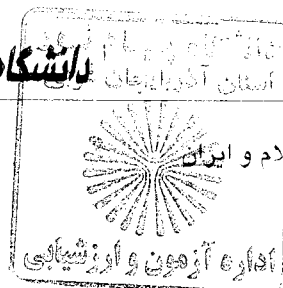 دانشگاه
استان آذربایجان
لام و ایران
اداره آزمون و ارزشیابی